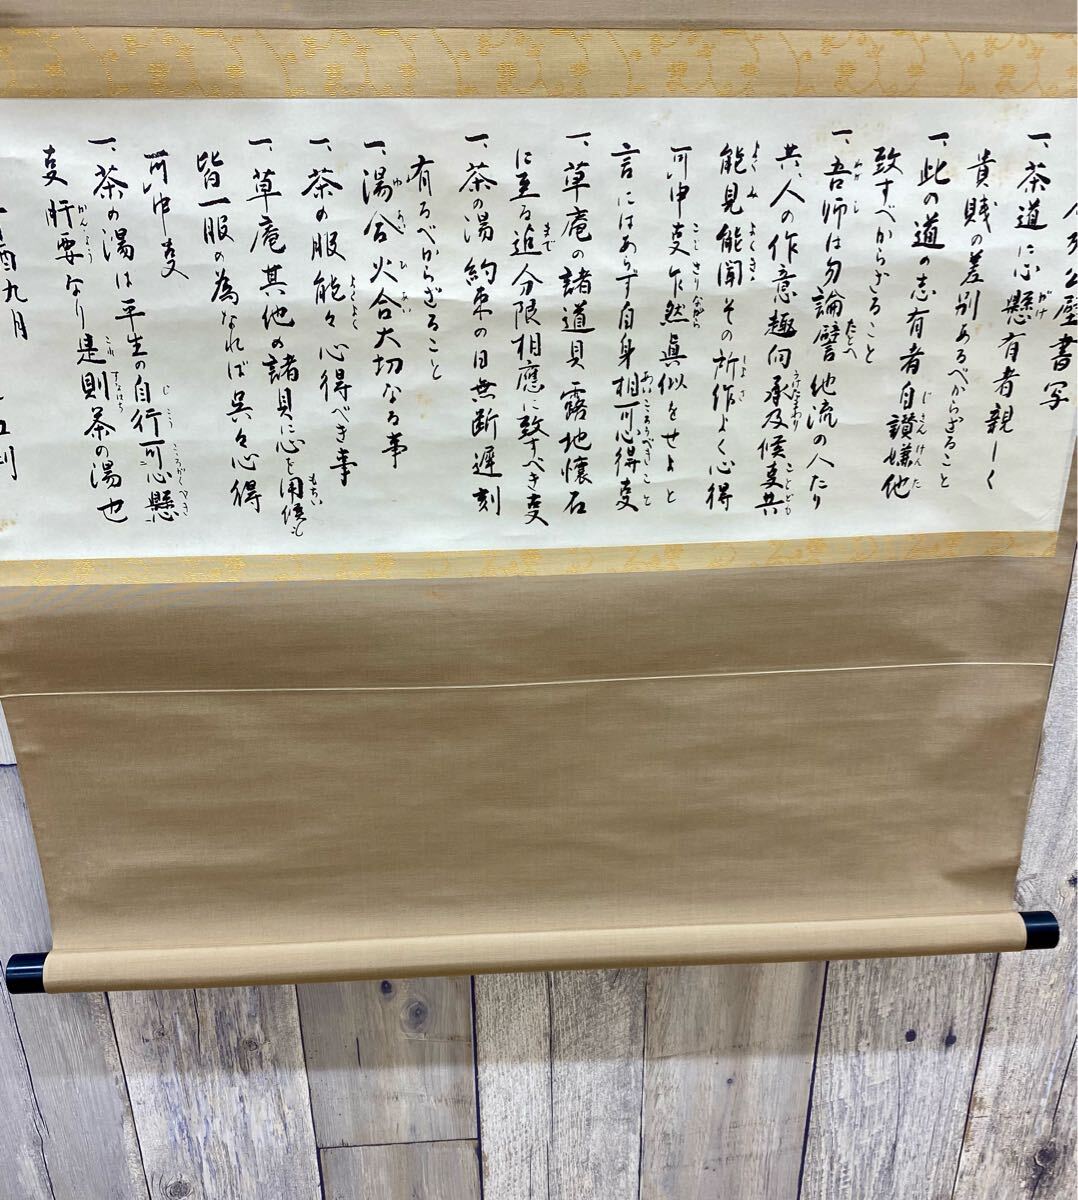 公壁書写
一、茶道に心懸有者親しく
貴賎の差別あるべからざること
一、此の道の志有者自讃嫌他
致すべからざること
一、吾師は勿論譬他流の人たり
共、人の作意趣向承及候事共
能見能聞その所作よく心得
可申事乍然眞似をせよと
言にはあらず自身相可心得事
一、草庵の諸道具露地懐石
に至る迄分限相應に致すべき事
一、茶の湯約束の日無断遅刻
有るべからざること
一、湯合火合大切なる事
一、茶の服能々心得べき事
一、草庵其他の諸具に心を用候も
皆一服の為なれば呉々心得
可申事
一、茶の湯は平生の自行可心懸
事肝要なり是則茶の湯也
酉九月